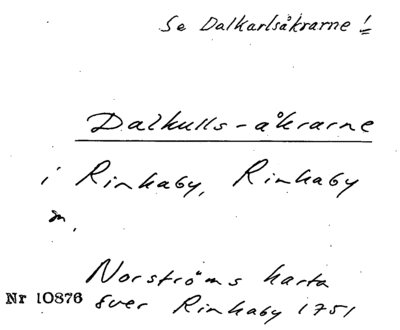 Se Dalkarlsåkrarne!
Dalkulls-åkrarne
i Rinkaby, Rinkaby
sn.
Norströms karta
Nr 10876 över Rinkaby 1751